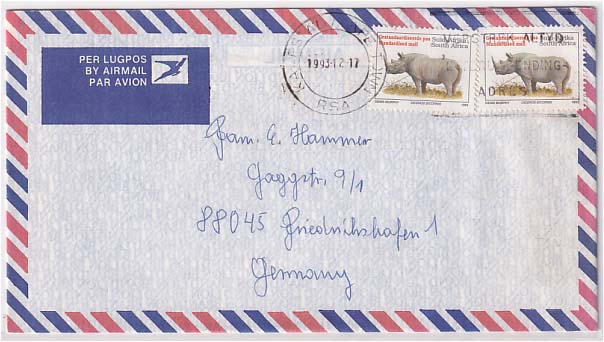 PER LUGPOS
BY AIRMAIL
PAR AVION
1993-12-17
RSA
Gestandaardiseerde pos Suid-Afrika
Standardised mail South Africa
Gestandaardiseerde pos Suid-Afrika
Standardised mail South Africa
Fam. E. Hammer
Jaggstr. 9/1
88045 Friedrichshafen 1
Germany